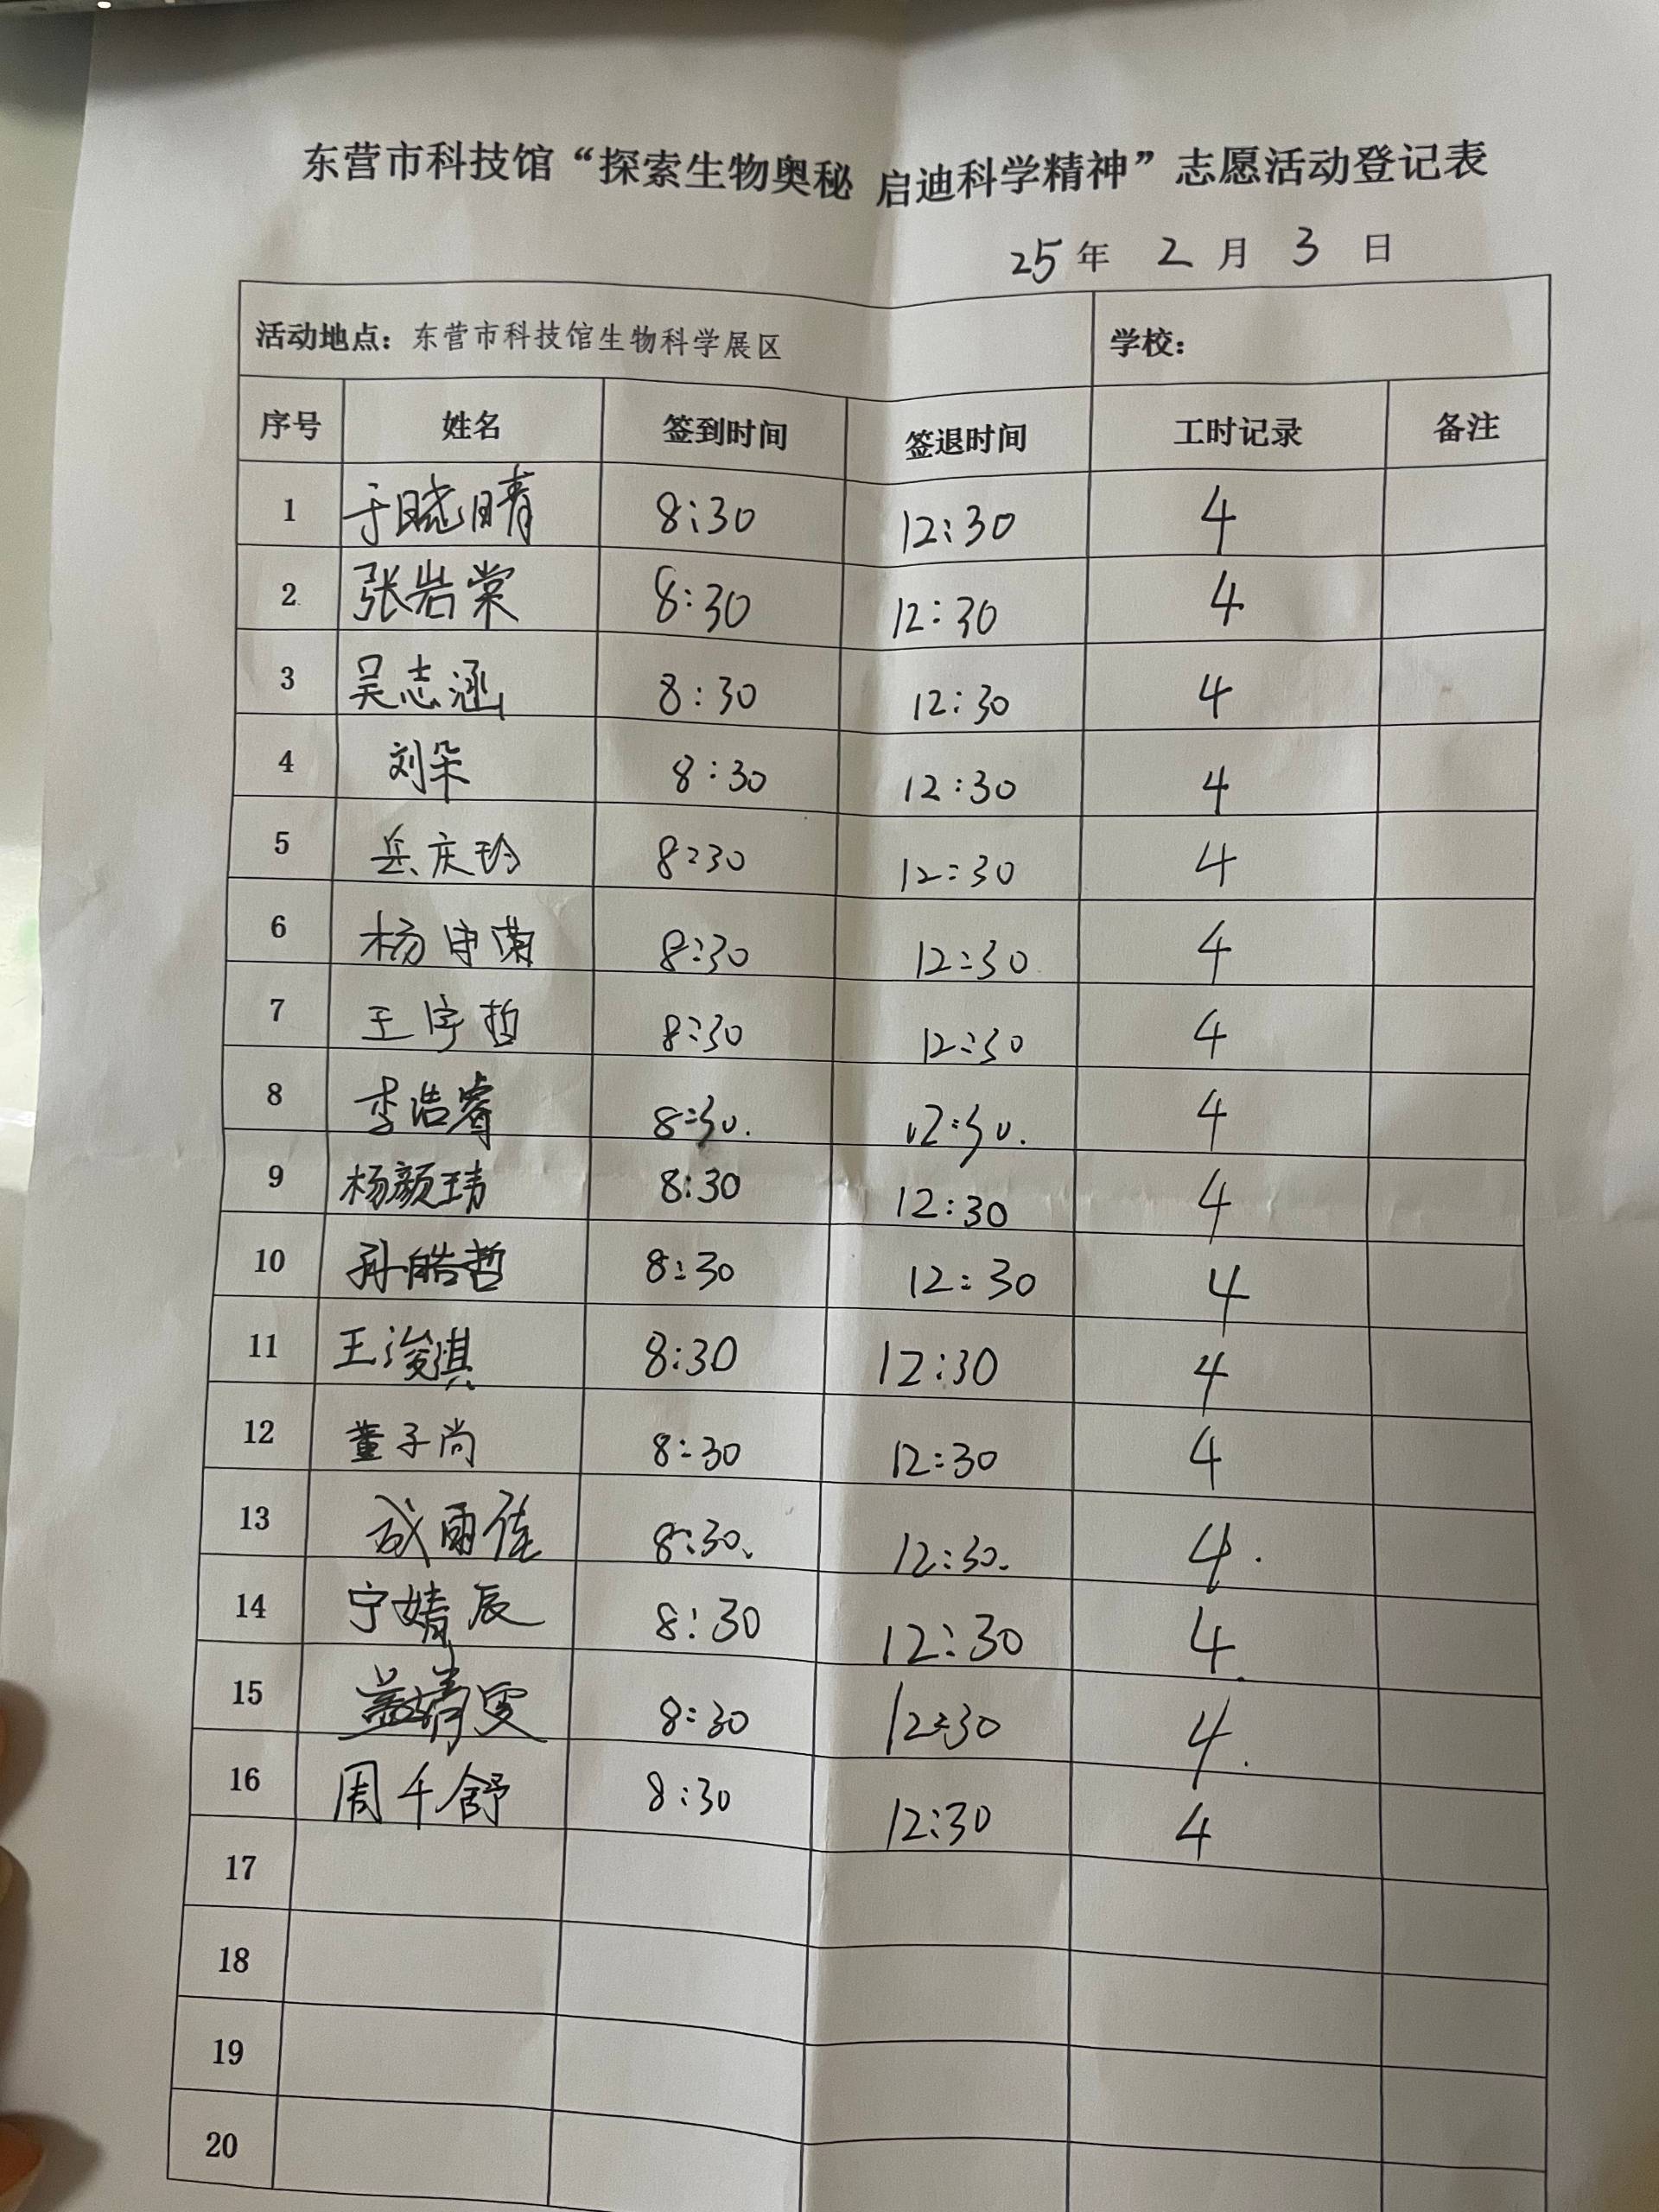 东营市科技馆“探索生物奥秘 启迪科学精神”志愿活动登记表
25年 2月 3日
活动地点：东营市科技馆生物科学展区 学校：
序号 姓名 签到时间 签退时间 工时记录 备注
1 于晓晴 8:30 12:30 4
2 张岩棠 8:30 12:30 4
3 吴志涵 8:30 12:30 4
4 刘朵 8:30 12:30 4
5 岳庆玲 8:30 12:30 4
6 杨申 8:30 12:30 4
7 王宇哲 8:30 12:30 4
8 李浩睿 8:30. 12:30. 4
9 杨颜玮 8:30 12:30 4
10 孙皓哲 8:30 12:30 4
11 王浚淇 8:30 12:30 4
12 董子尚 8:30 12:30 4
13 成雨佳 8:30、 12:30、 4.
14 宁婧辰 8:30 12:30 4.
15 盖婧雯 8:30 12:30 4.
16 周千舒 8:30 12:30 4
17
18
19
20